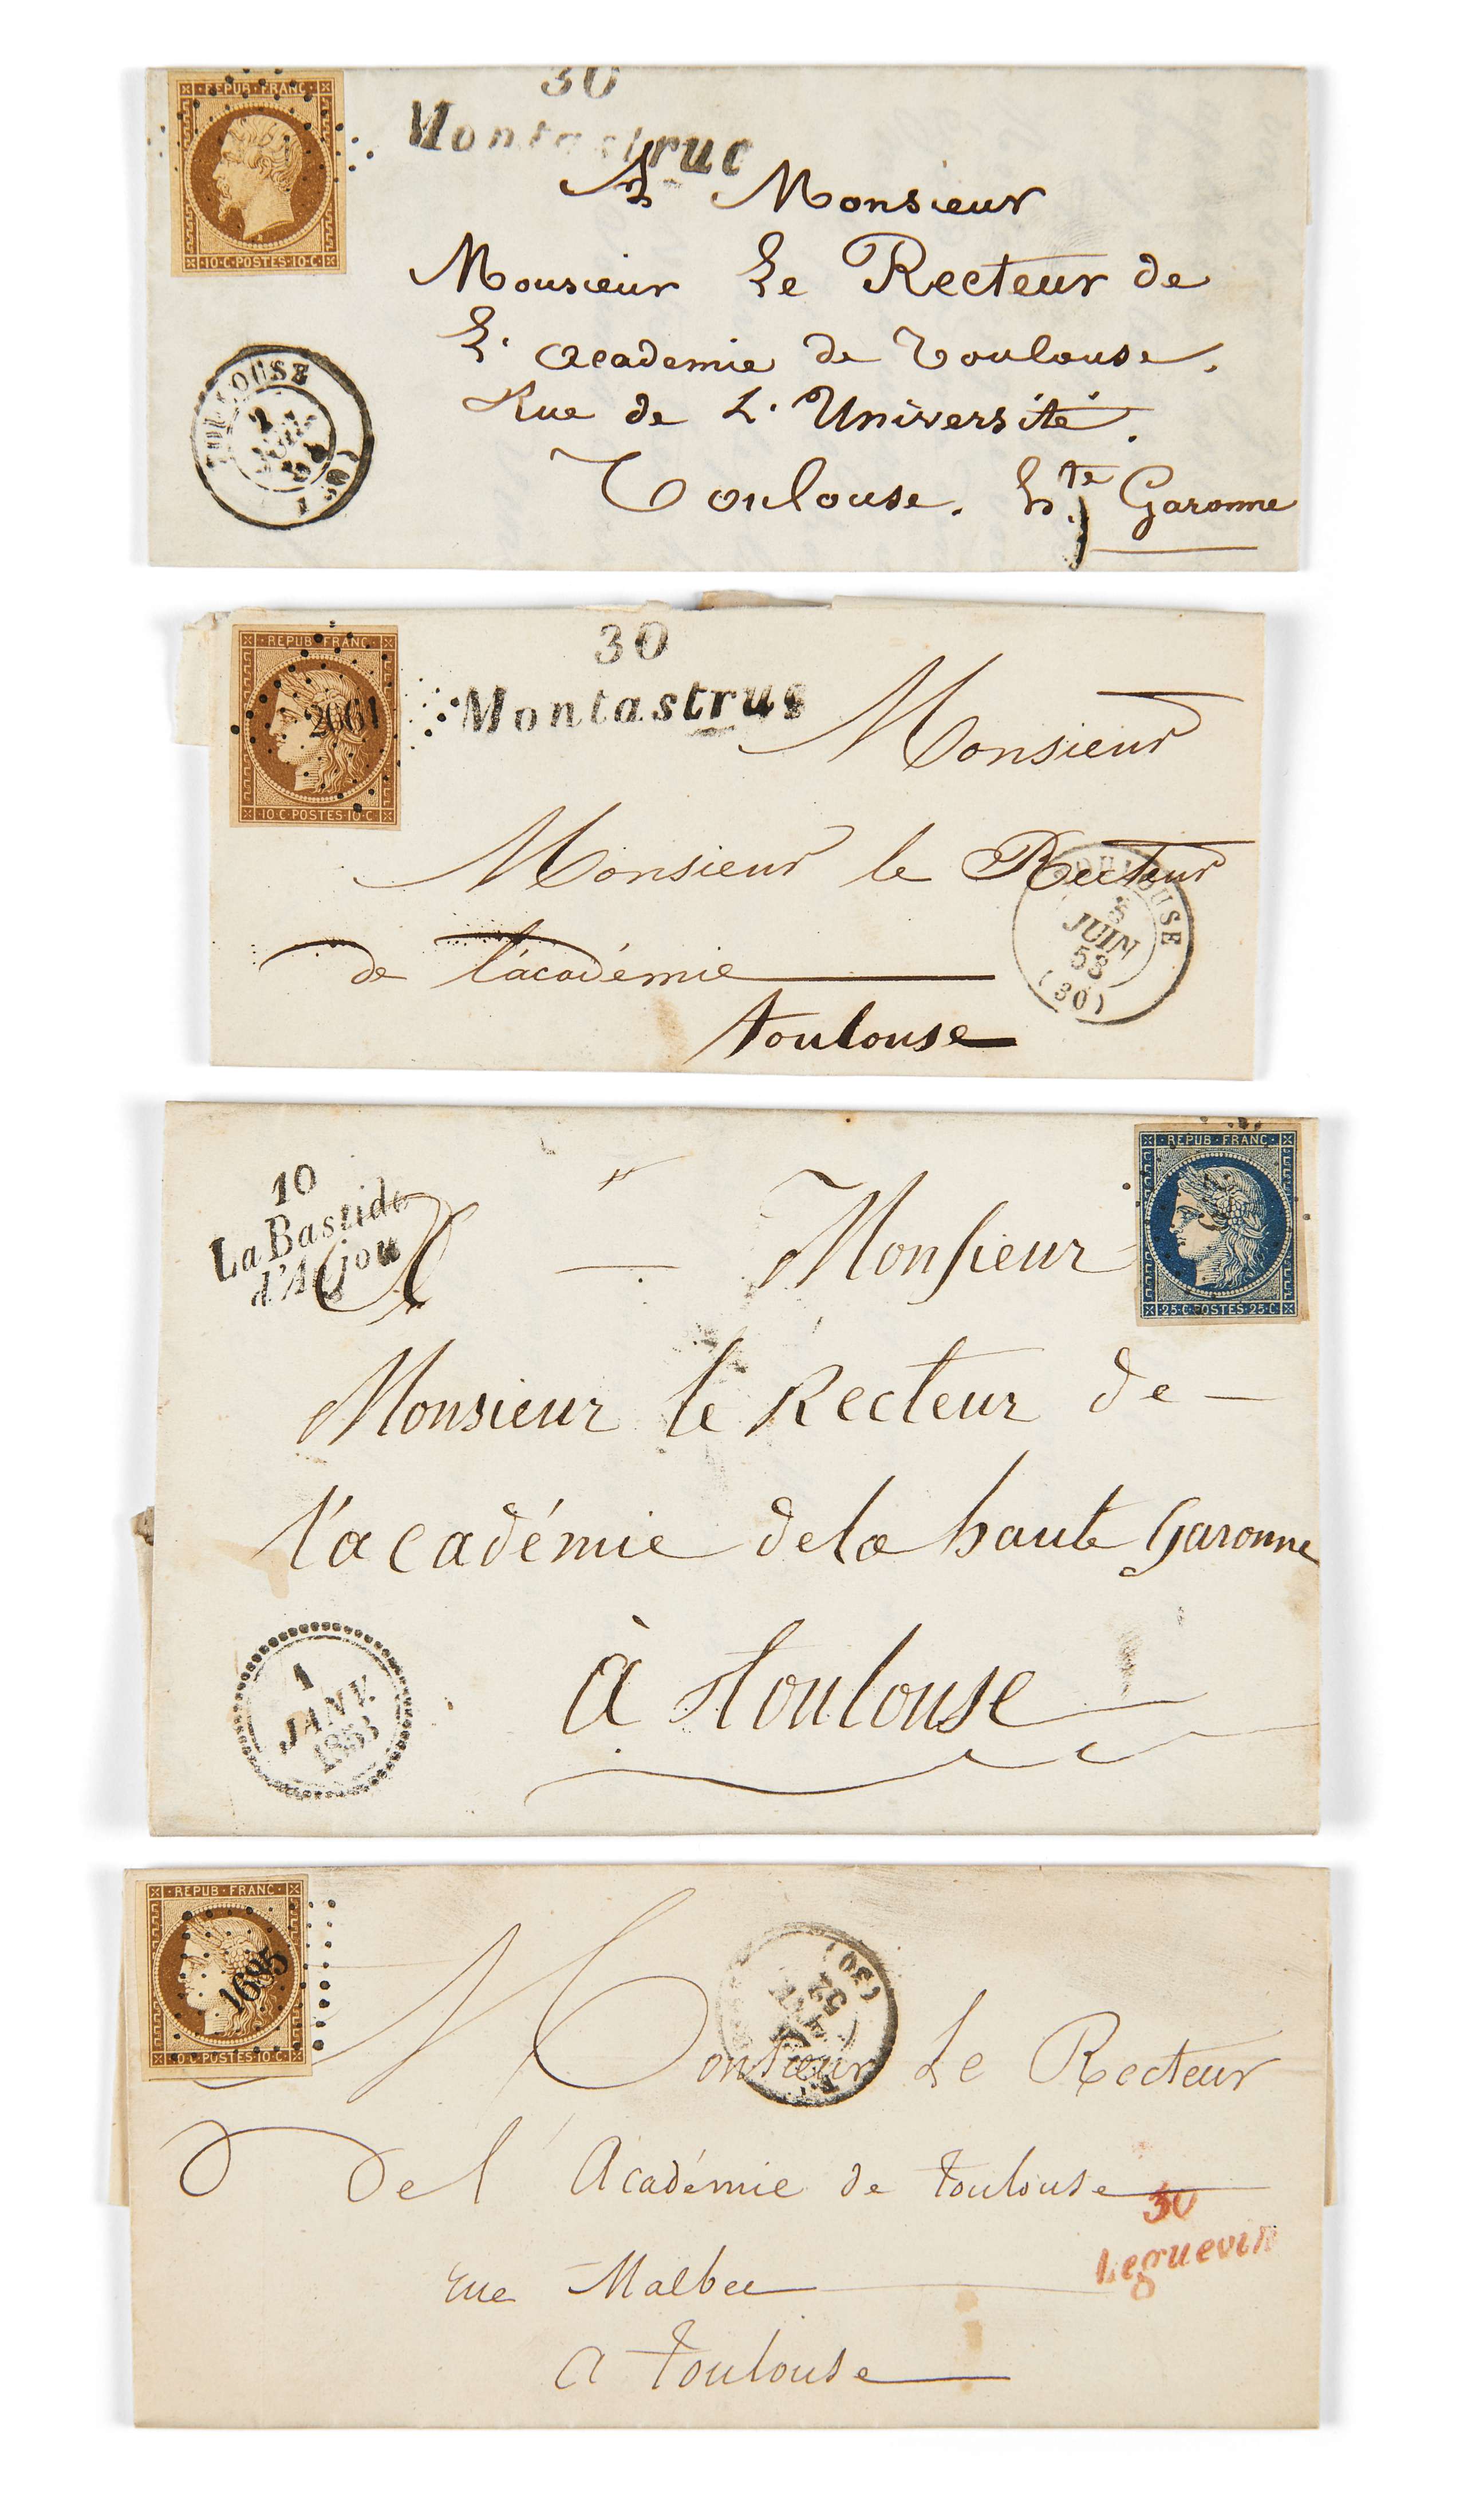 REPUB FRANC
10·C·POSTES·10·C
30
Montastruc
A Monsieur
Monsieur Le Recteur de
L'academie de Toulouse.
Rue de L'Université.
Toulouse. hte Garonne
TOULOUSE
2
(30)
REPUB FRANC
2061
10·C·POSTES·10·C
30
Montastruc
Monsieur
Monsieur le Recteur
de l'académie
toulouse
TOULOUSE
JUIN
53
(30)
10
La Bastide
d'Anjou
A Monsieur
REPUB FRANC
25·C·POSTES·25·C
Monsieur le Recteur de
l'académie de la haute Garonne
à toulouse
1
JANV.
1853
REPUB FRANC
1685
10·C·POSTES·10·C
52
(30)
Monsieur Le Recteur
de l'Académie de toulouse
30
Leguevin
rue Malbec
a toulouse